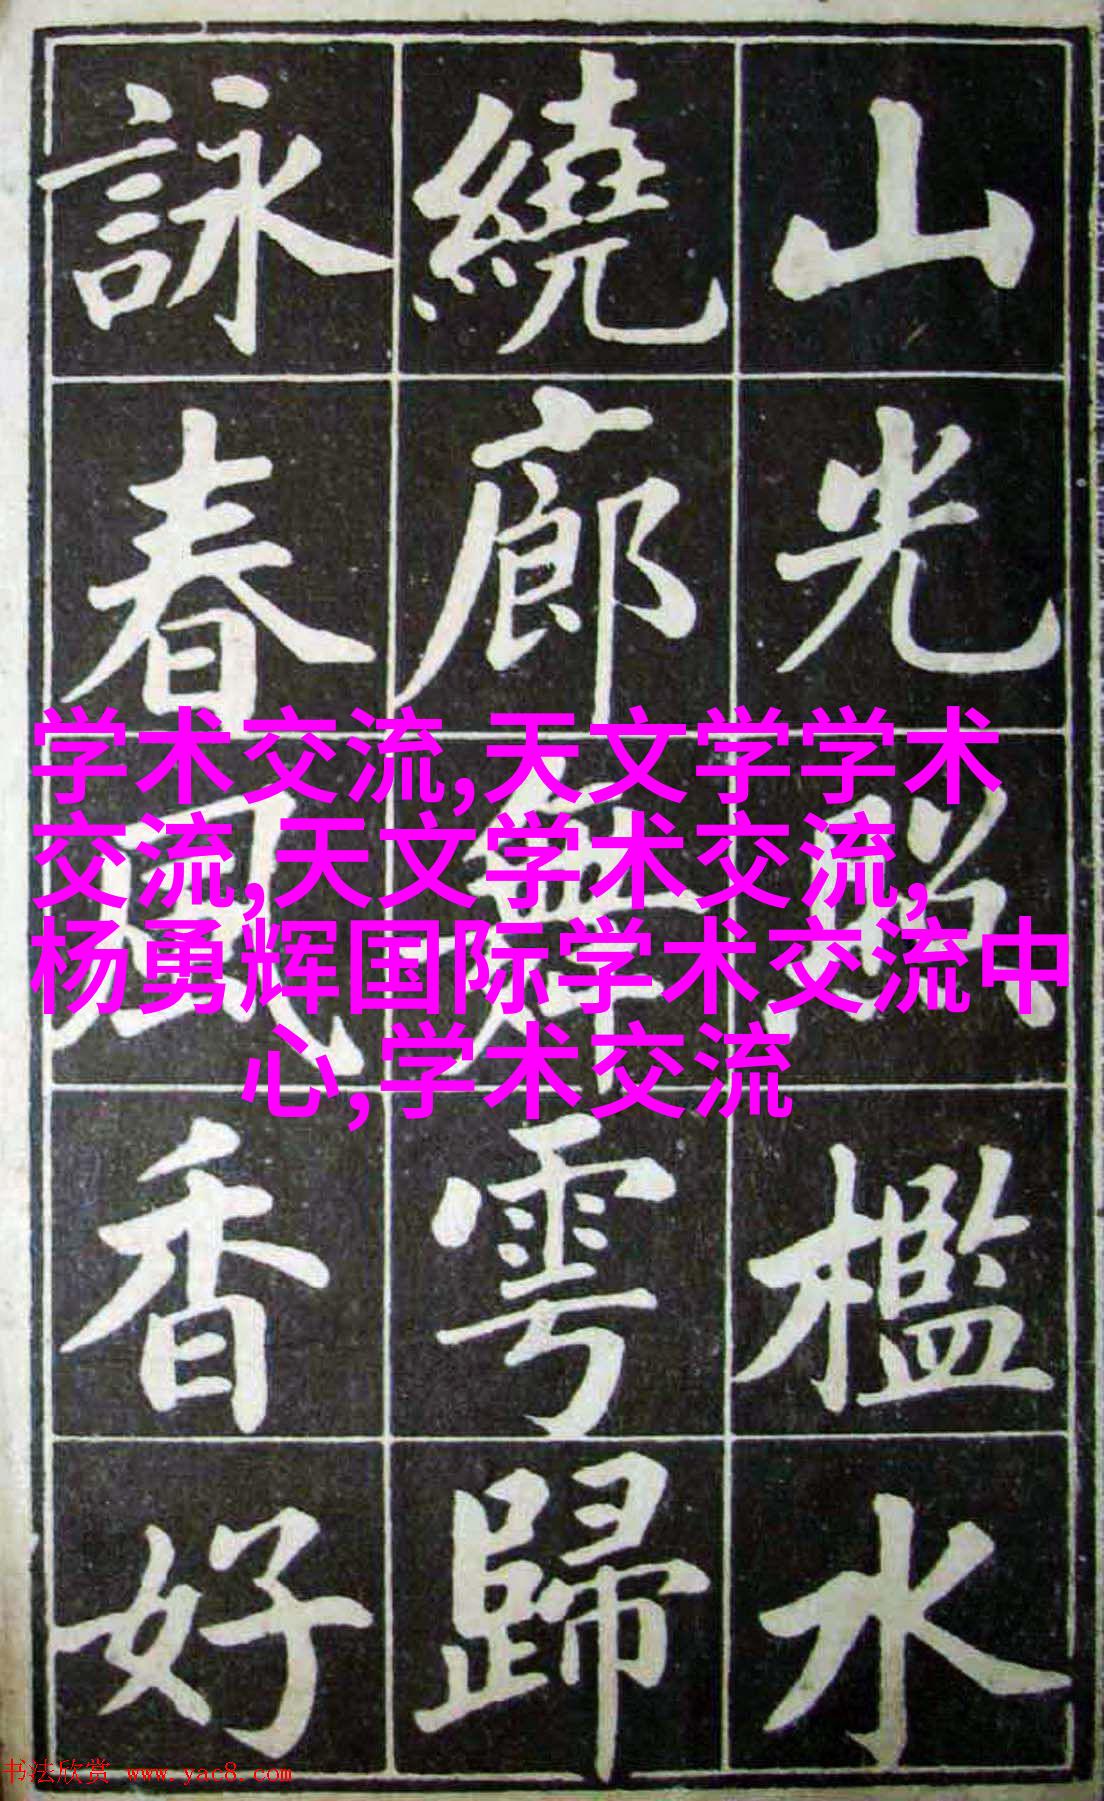 山光照檻水
繞廊舞雩歸
詠春風香好
学术交流,天文学学术
交流,天文学术交流,
杨勇辉国际学术交流中
心,学术交流
书法欣赏 www.yac8.com